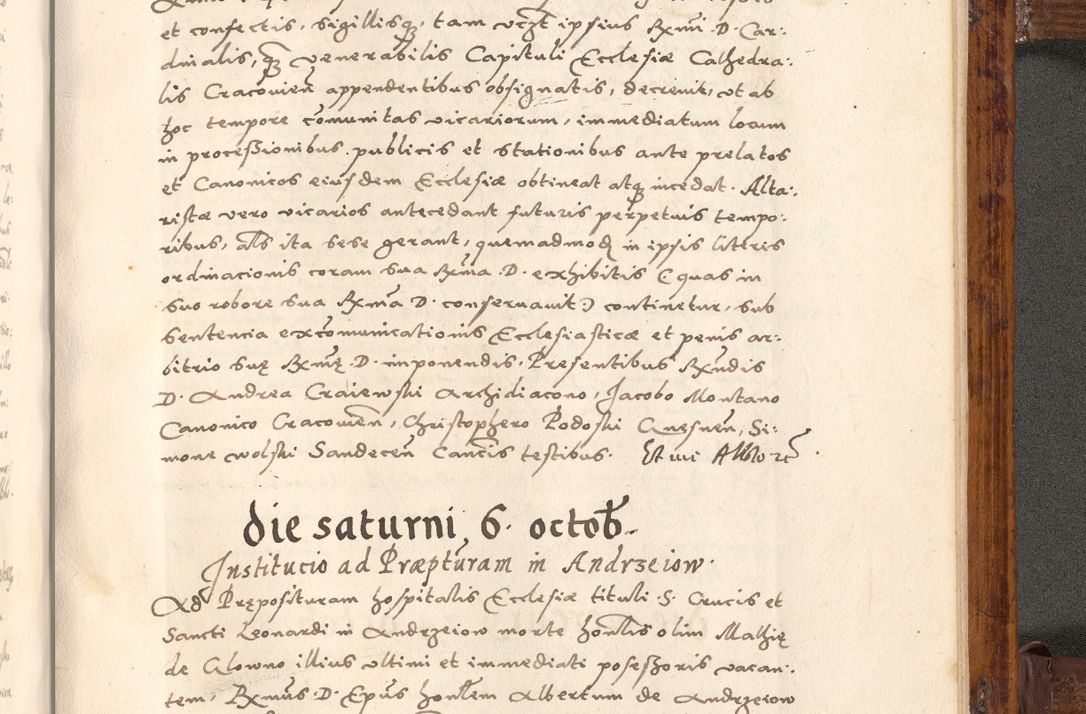 et confectis, sigillisq, tam vczt ipsius Rxmi D. Car:
dinalis, q̃ venerabilis Capituli Ecclesiæ Cathedra:
lis Cracovien̄ appendentibus obsignatis, decrevit, vt ab
hoc tempore cōmunitas vicariorum, immediatum locum
in proceßionibus publicis et stationibus ante prelatos
et Canonicos eiusdem Ecclesiæ obtineat atq incedat. Alta:
ristæ vero vicarios antecedant futuris perpetuis tempo:
ribus, als ita sese gerant, quemadmod in ipsis literis
ordinacionis coram sua Rxma D. exhibitis (quas in
suo robore sua Rxma D. conseruauit) continetur, sub
sentencia excōmunicationis Ecclesiasticæ et penis ar:
bitrio suę Rxmę D. imponendis. Presentibus Rxndis
D. Andrea Craiewski Archidiacono, Jacobo Montano
Canonico Cracovien̄, Christophero Podoski Gnesnen̄, Si:
mone wolski Sandecen̄ Canc̄is testibus.
die saturni, 6. octob̄.
Institucio ad Præpturam in Andrzeiow.
Ad Pręposituram hospitalis Ecclesiæ tituli S. Crucis et
Sancti Leonardi in Andrzeiow morte honlis olim Mathię
de Glowno illius vltimi et immediati poseßoris vacan:
tem, Rxmus D. Epus honlem Albertum de Andrzeiow